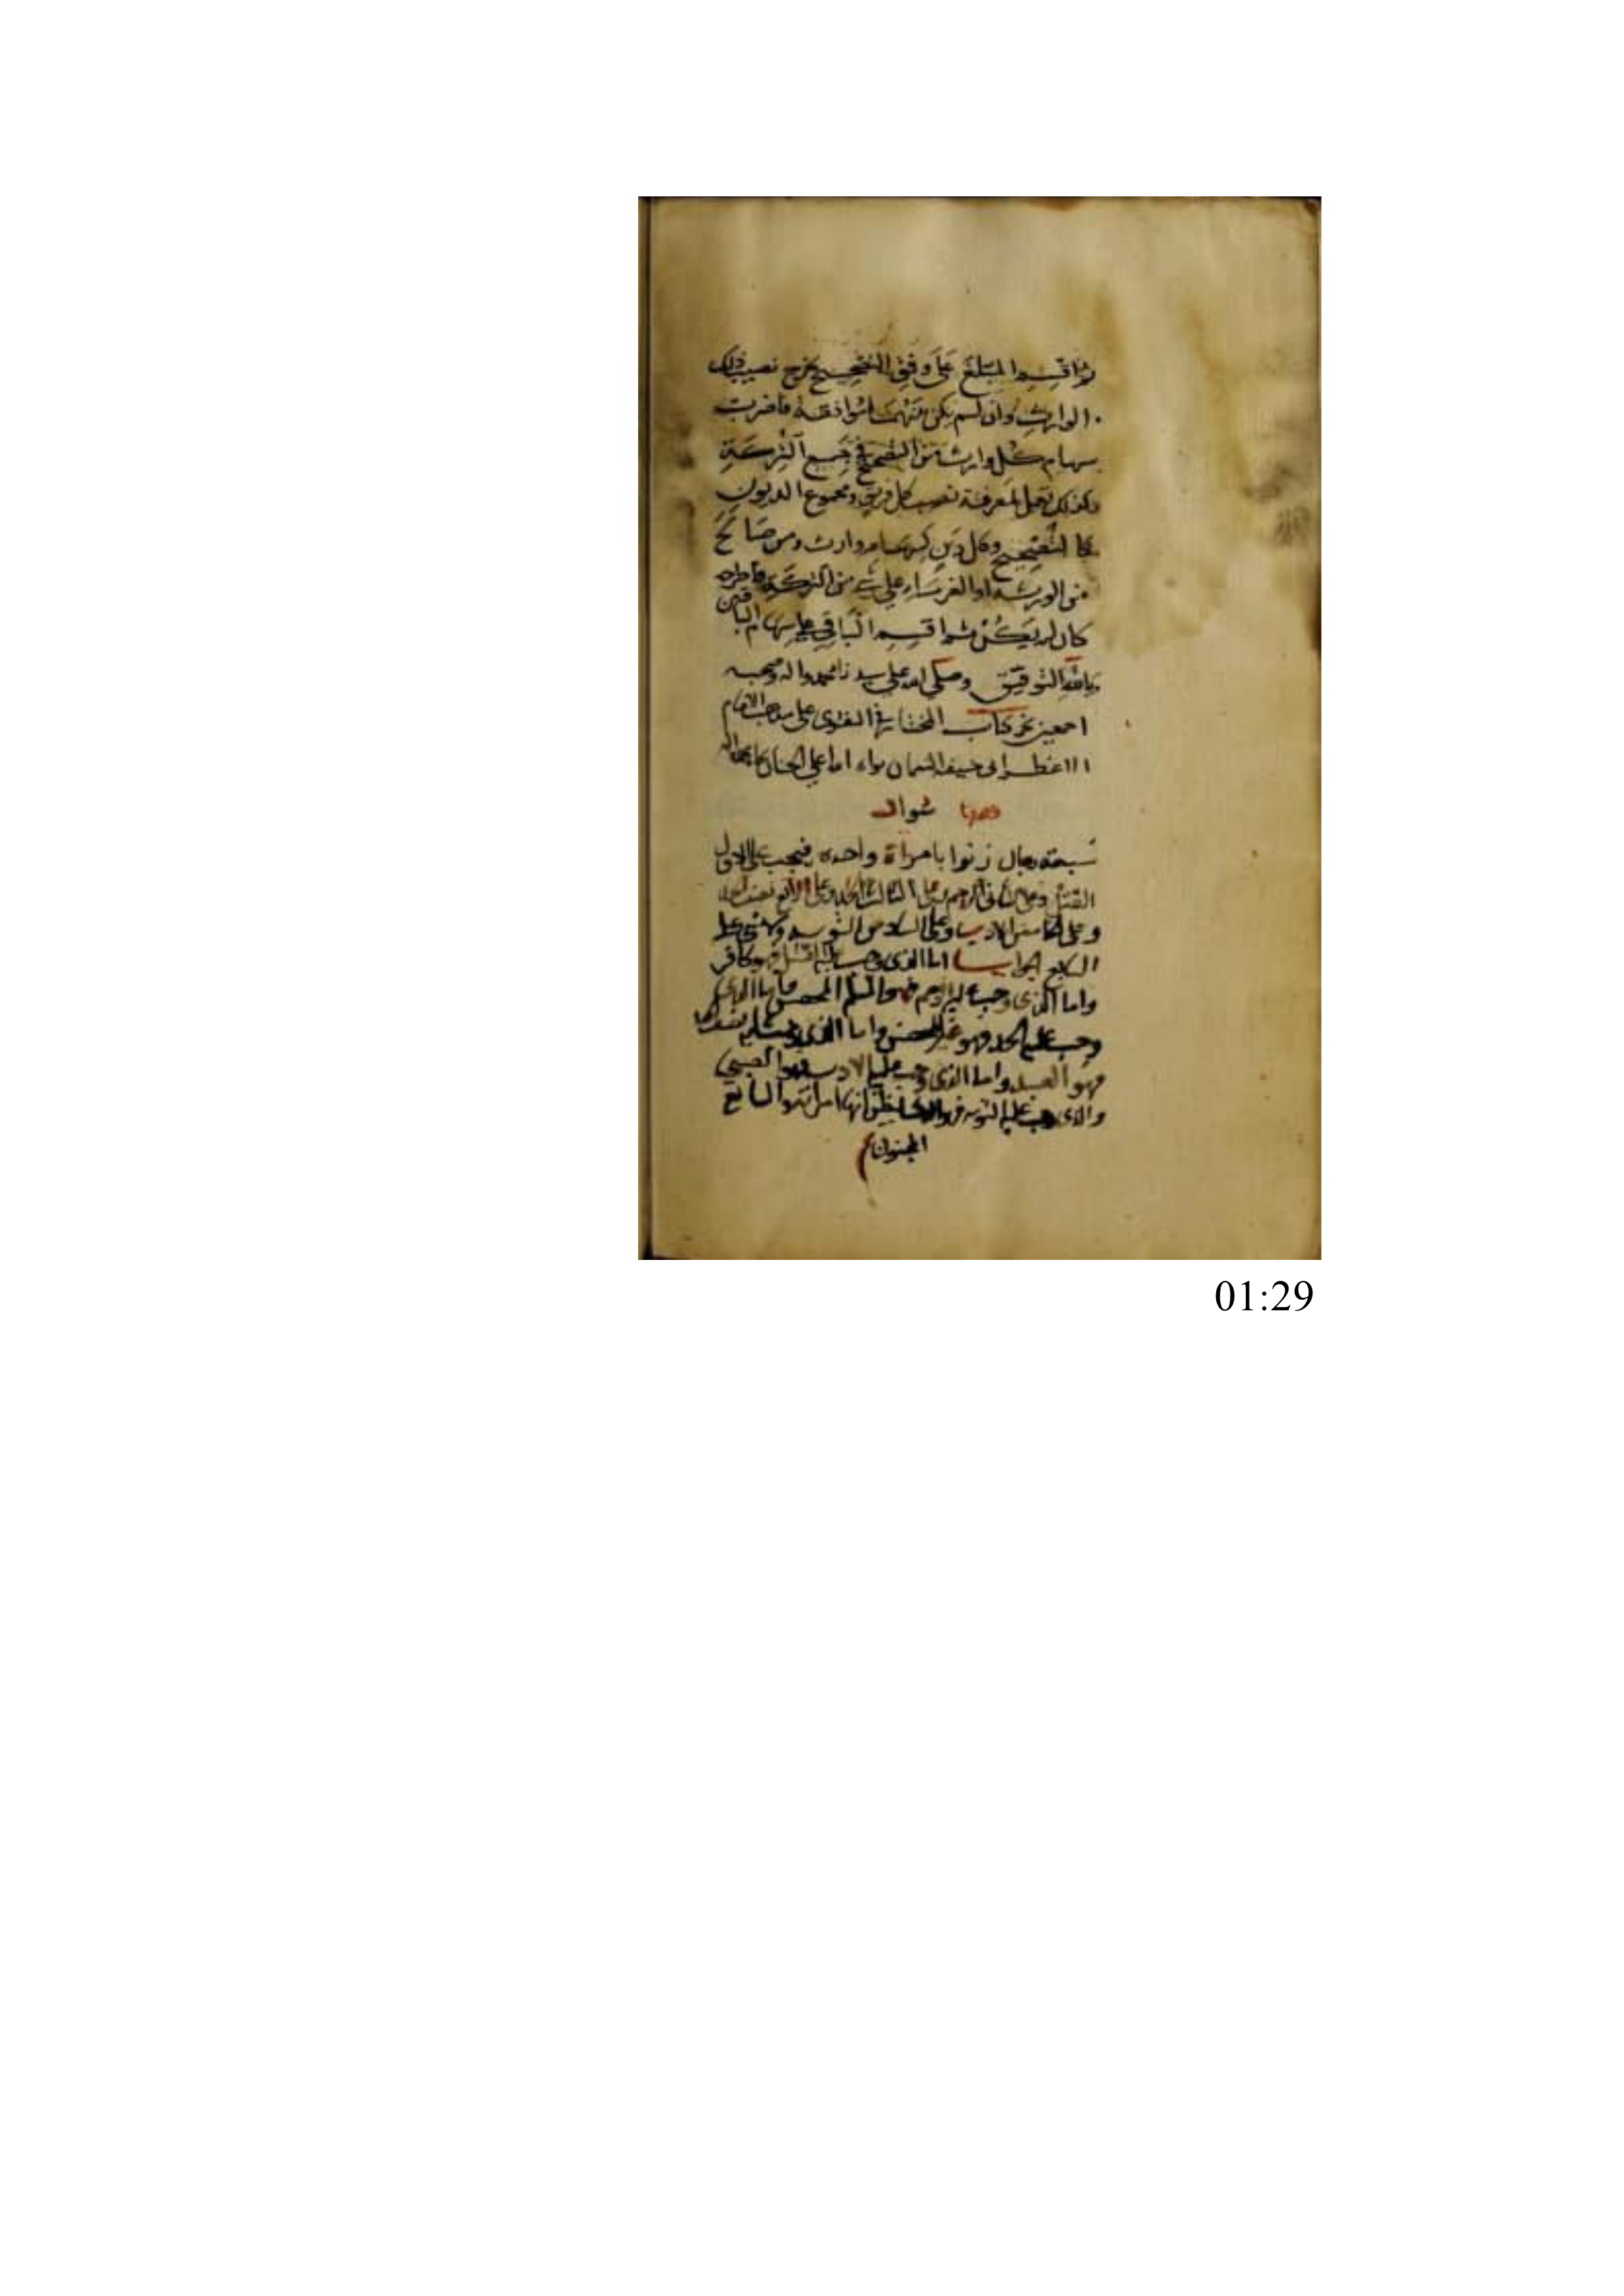 ثم اقسم المبلغ على وفق التصحيح يخرج نصيب ذلك
الوارث وان لم يكن بينهما موافقة فاضرب
سهام كل وارث من التصحيح في جميع التركة
وكذلك تعمل لمعرفة نصيب كل فريق ومجموع الديون
كالتصحيح وكل دين كسهام وارث ومن صالح
من الورثة او الغرماء على شي من التركة فاطرحه
كان لم يكن ثم اقسم الباقي على سهام الباقين
وبالله التوفيق وصلى الله على سيدنا محمد واله وصحبه
اجمعين كتاب المختار في الفتوى على مذهب الامام
الاعظم ابي حنيفة النعمان
سوال
سبعة رجال زنوا بامراة واحده فيجب على الاول
القتل وعلى الثاني الرجم وعلى الثالث الحد وعلى الرابع نصف الحد
وعلى الخامس الادب وعلى السادس التوبه ولا شي على
السابع الجواب اما الذي وجب عليه القتل فهو كافر
واما الذي وجب عليه الرجم فهو المسلم المحصن واما الذي
وجب عليه الحد فهو غير المحصن واما الذي عليه نصف الحد
فهو العبد واما الذي وجب عليه الادب فهو الصبي
والذي وجب عليه التوبه فهو الذي ظن انها امراته والسابع
المجنون
01:29